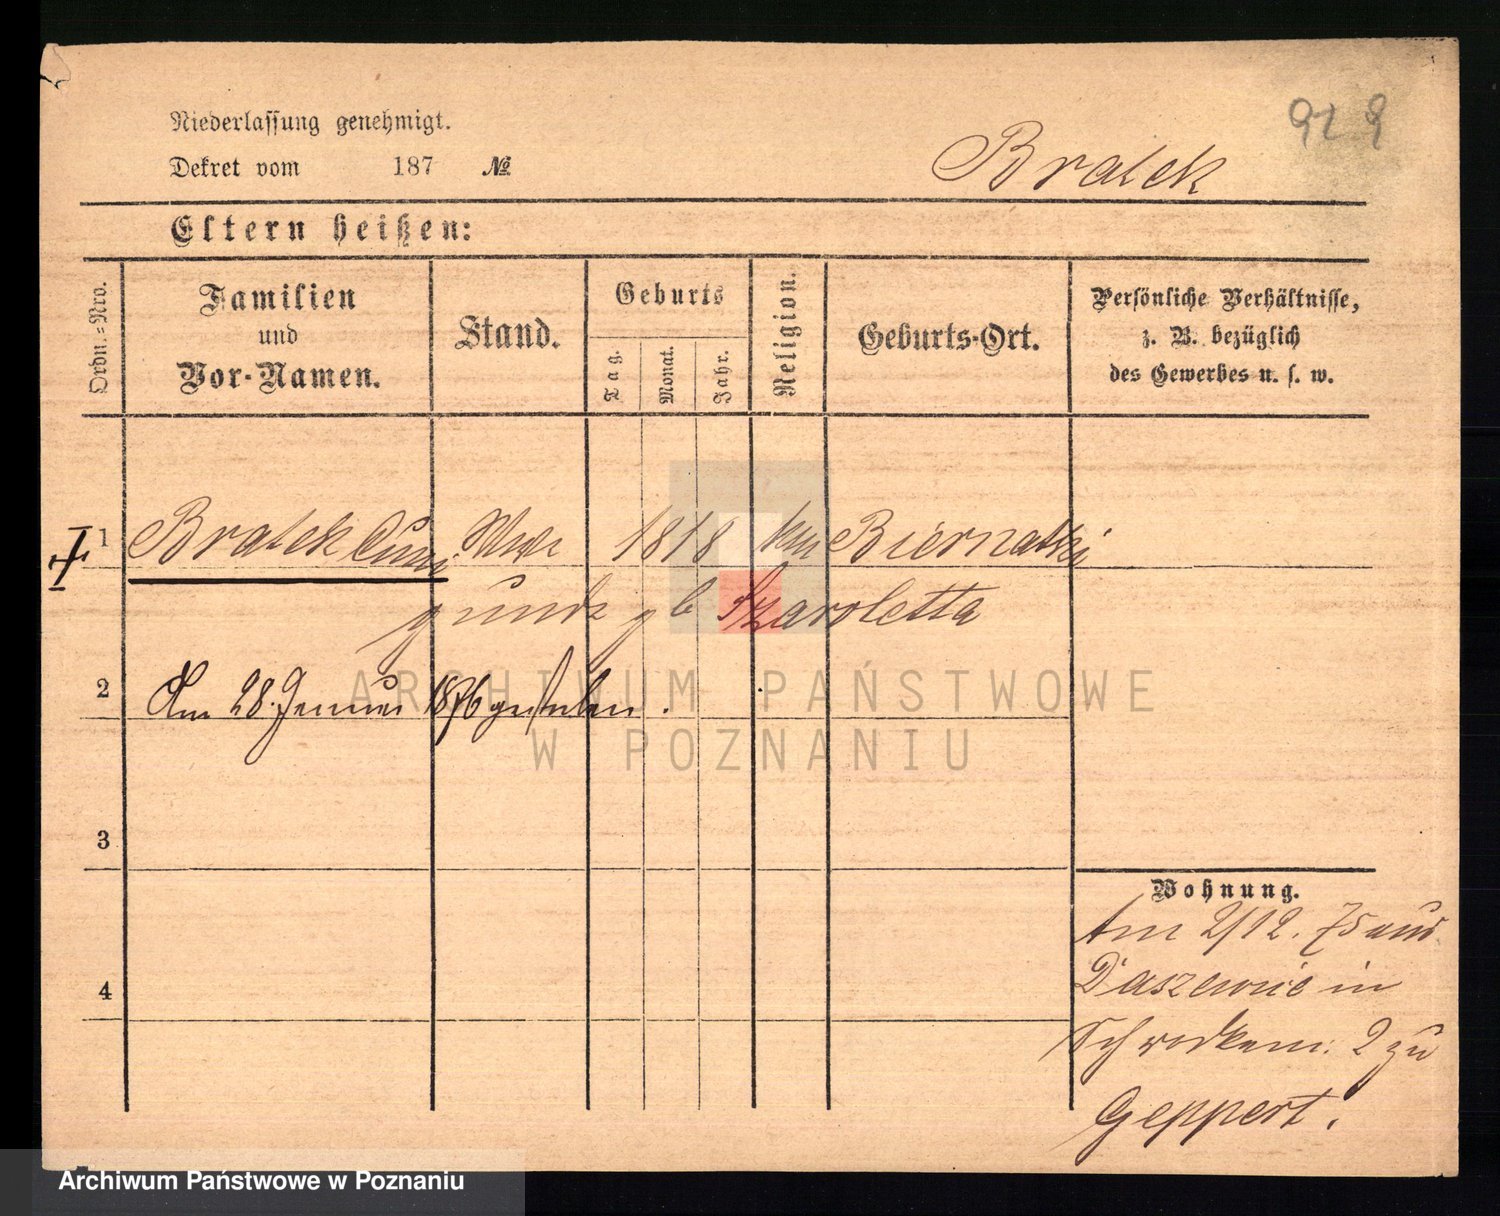 919
Niederlassung genehmigt.
Dekret vom 187 №
Bratek
Eltern heißen:
Ordn.=Nro.
Familien
und
Vor-Namen.
Stand.
Geburts
Tag.
Monat.
Jahr.
Religion.
Geburts-Ort.
Persönliche Verhältnisse,
z. B. bezüglich
des Gewerbes u. s. w.
1 Bratek Cuni Wwe 1818 kth Biernatki
gunde gb
2 Am 28. Januar 1876 gestorben.
3
4
Wohnung.
Am 2/12. 75 aus
Daszewice in
Schrodkam. 2 zu
Geppert.
ARCHIWUM PAŃSTWOWE
W POZNANIU
Archiwum Państwowe w Poznaniu